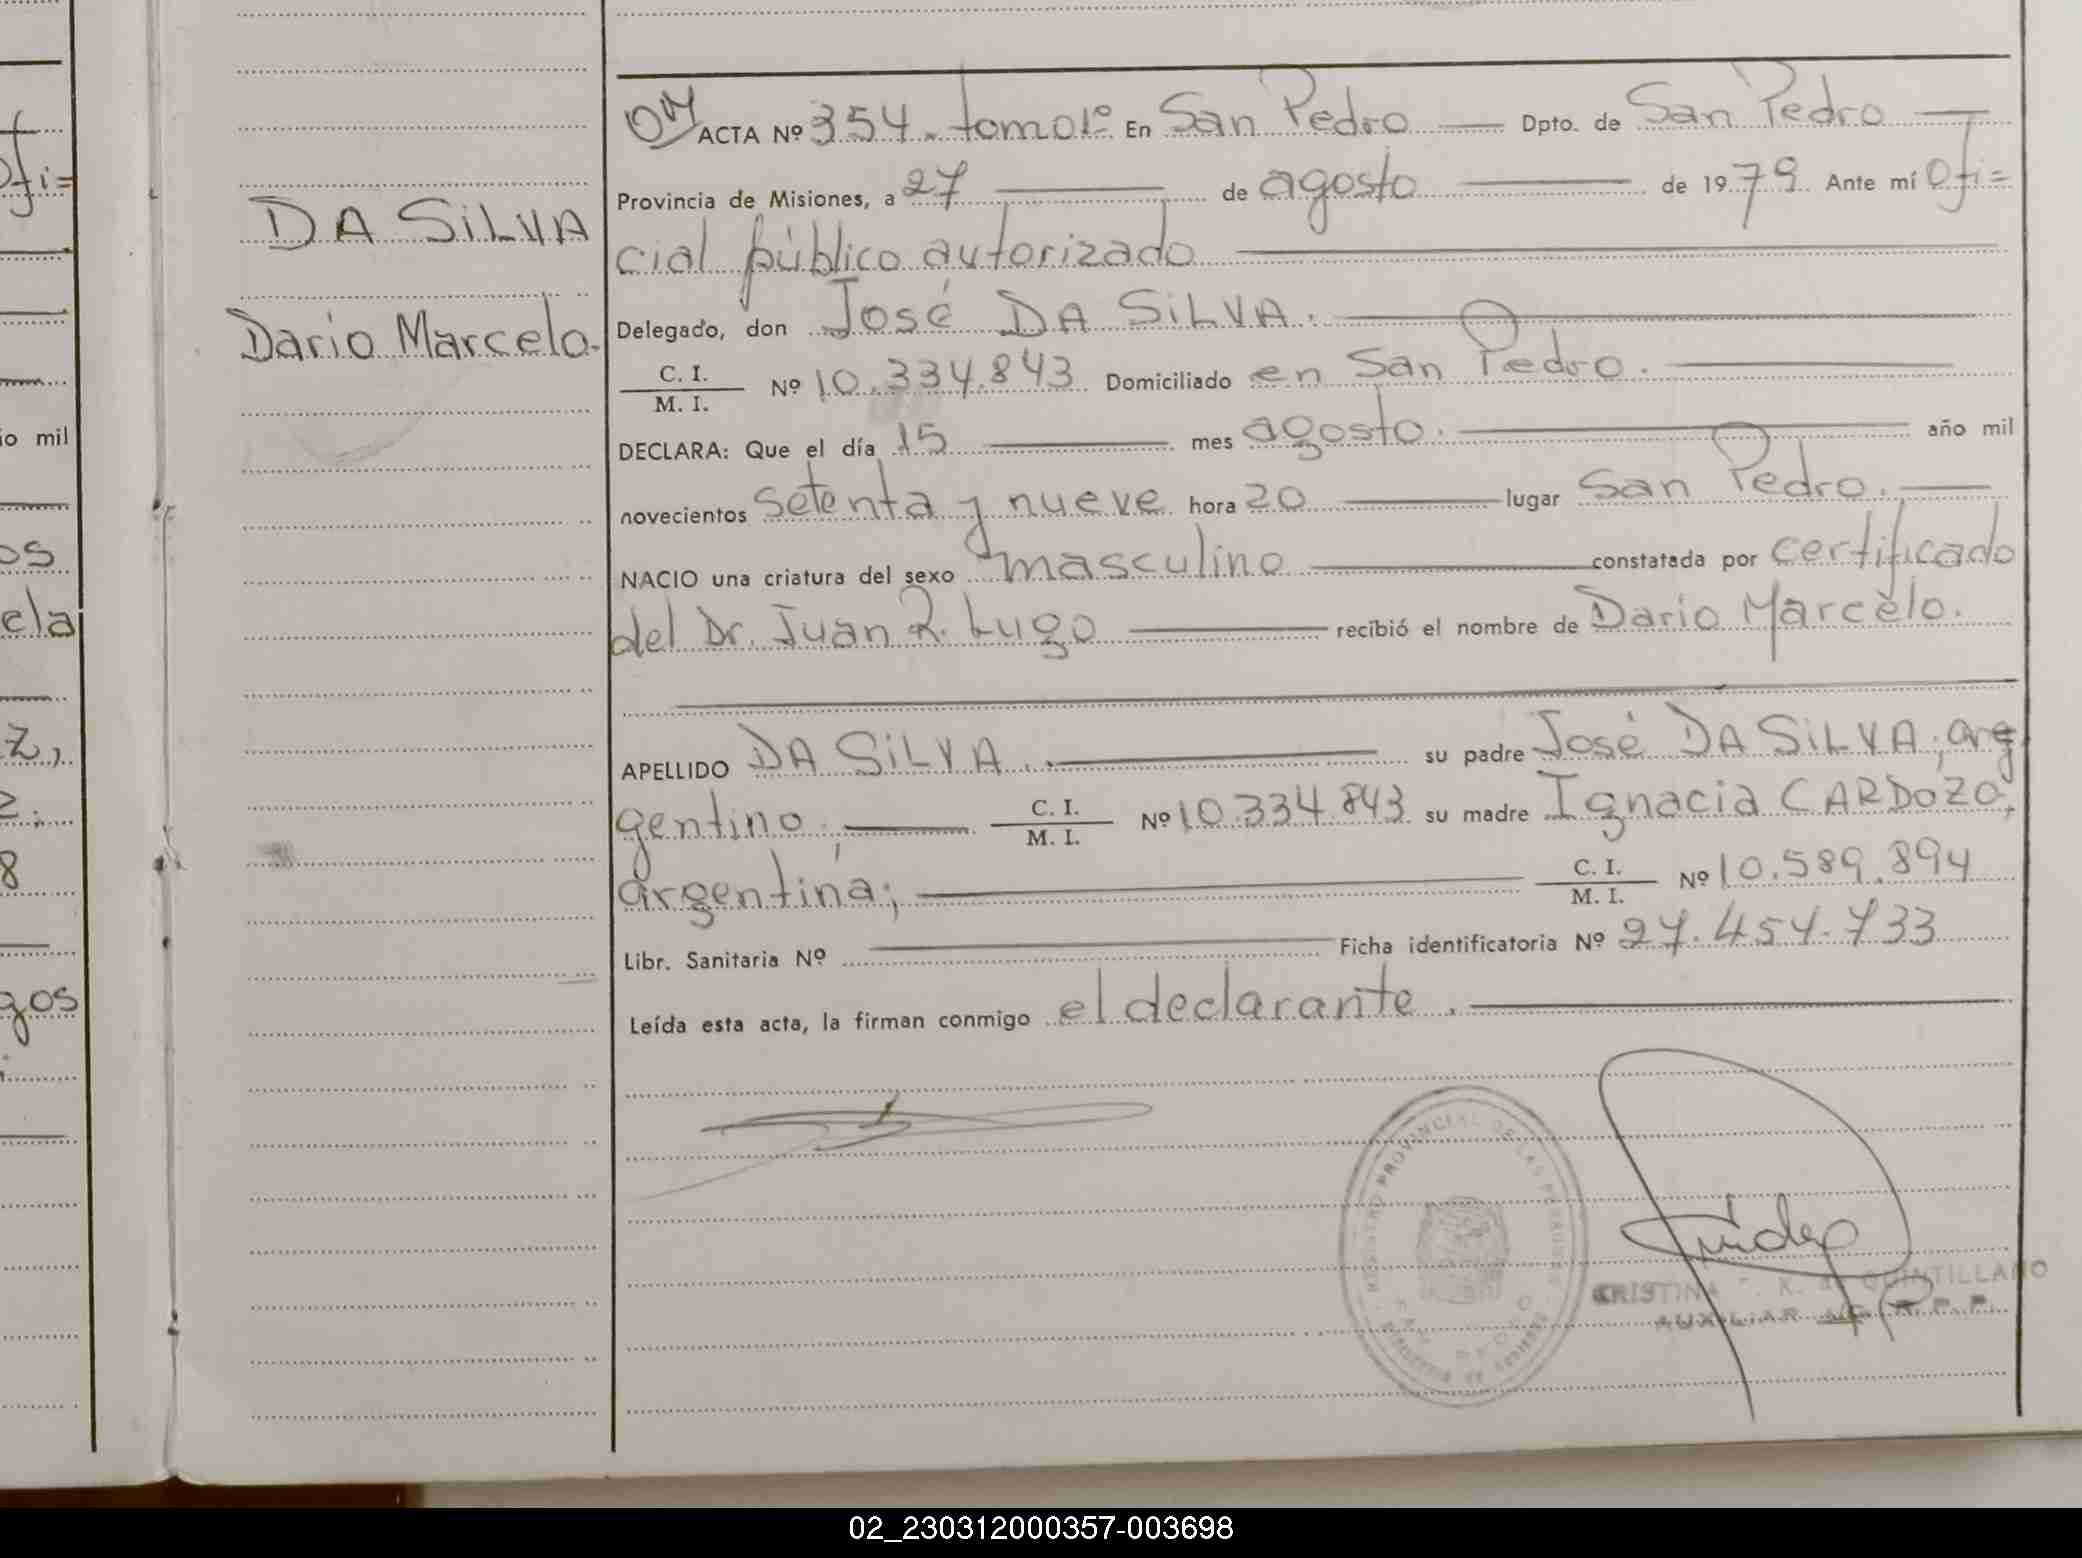 DA SILVA
Dario Marcelo.
OM ACTA Nº 354. tomo 1º En San Pedro Dpto. de San Pedro
Provincia de Misiones, a 27 de agosto de 1979. Ante mí Ofi=
cial público autorizado
Delegado, don José DA SILVA.
C. I. / M. I. Nº 10.334.843 Domiciliado en San Pedro.
DECLARA: Que el día 15 mes agosto. año mil
novecientos setenta y nueve hora 20 lugar San Pedro.
NACIO una criatura del sexo masculino constatada por certificado
del Dr. Juan R. Lugo recibió el nombre de Dario Marcelo.
APELLIDO DA SILVA. su padre José DA SILVA, arg
gentino, C. I. / M. I. Nº 10.334.843 su madre Ignacia CARDOZO,
argentina; C. I. / M. I. Nº 10.589.894
Libr. Sanitaria Nº Ficha identificatoria Nº 27.454.733
Leída esta acta, la firman conmigo el declarante.
REGISTRO PROVINCIAL DE LAS PERSONAS
CRISTINA K. de QUINTILLANO
AUXILIAR R.P.P.
ofi=
io mil
os
ela
z,
8
gos
02_230312000357-003698